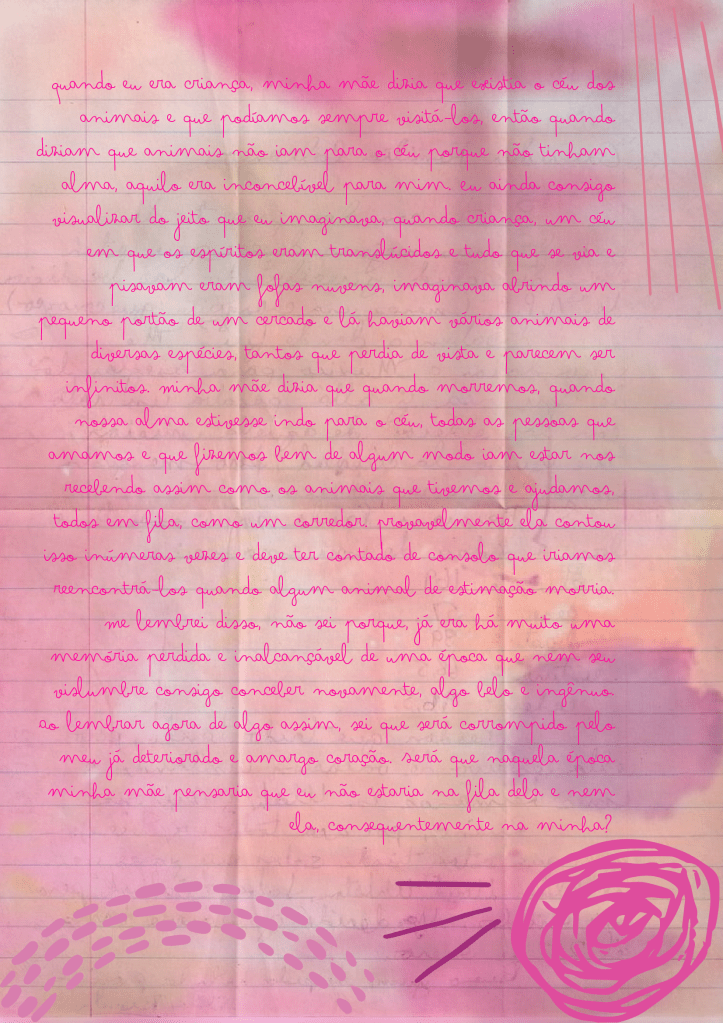 quando eu era criança, minha mãe dizia que existia o céu dos
animais e que podíamos sempre visitá-los, então quando
diziam que animais não iam para o céu porque não tinham
alma, aquilo era inconcebível para mim. eu ainda consigo
visualizar do jeito que eu imaginava, quando criança, um céu
em que os espíritos eram translúcidos e tudo que se via e
pisavam eram fofas nuvens, imaginava abrindo um
pequeno portão de um cercado e lá haviam vários animais de
diversas espécies, tantos que perdia de vista e parecem ser
infinitos. minha mãe dizia que quando morremos, quando
nossa alma estivesse indo para o céu, todas as pessoas que
amamos e que fizemos bem de algum modo iam estar nos
recebendo assim como os animais que tivemos e ajudamos,
todos em fila, como um corredor. provavelmente ela contou
isso inúmeras vezes e deve ter contado de consolo que iriamos
reencontrá-los quando algum animal de estimação morria.
me lembrei disso, não sei porque, já era há muito uma
memória perdida e inalcançável de uma época que nem seu
vislumbre consigo conceber novamente, algo belo e ingênuo.
ao lembrar agora de algo assim, sei que será corrompido pelo
meu já deteriorado e amargo coração. será que naquela época
minha mãe pensaria que eu não estaria na fila dela e nem
ela, consequentemente na minha?